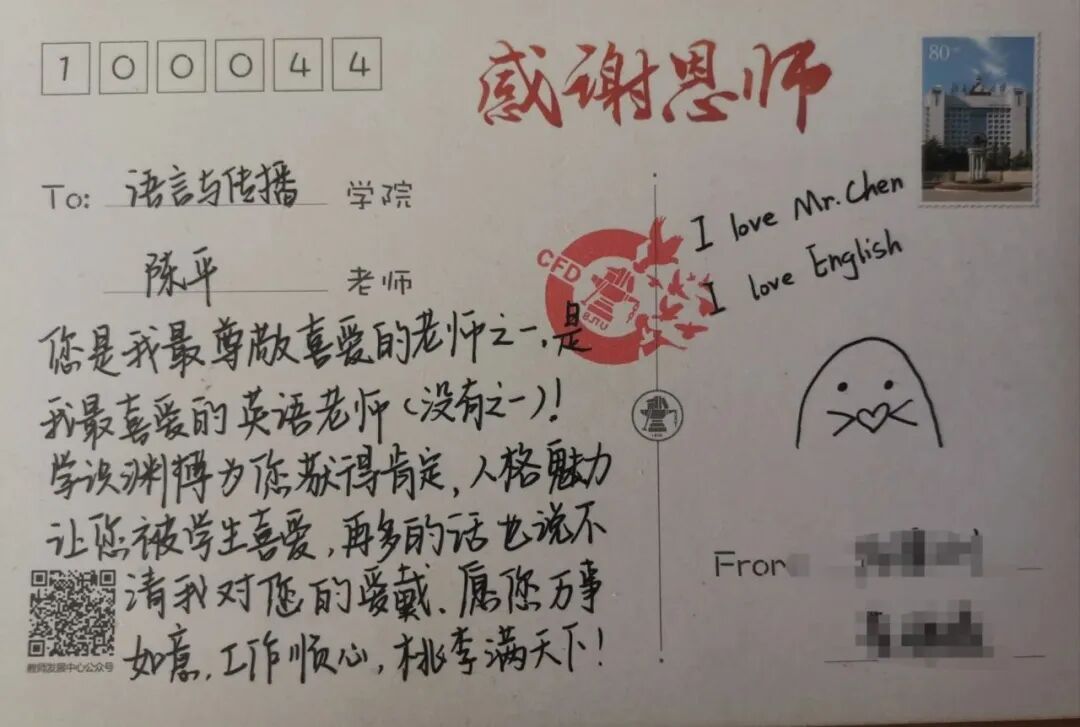 100044
感谢恩师
80
To: 语言与传播 学院
陈平 老师
I love Mr. Chen
I love English
CFD
BJTU
您是我最尊敬喜爱的老师之一，是
我最喜爱的英语老师（没有之一）！
学识渊博为您获得肯定，人格魅力
让您被学生喜爱，再多的话也说不
清我对您的爱戴．愿您万事
如意，工作顺心，桃李满天下！
教师发展中心公众号
From